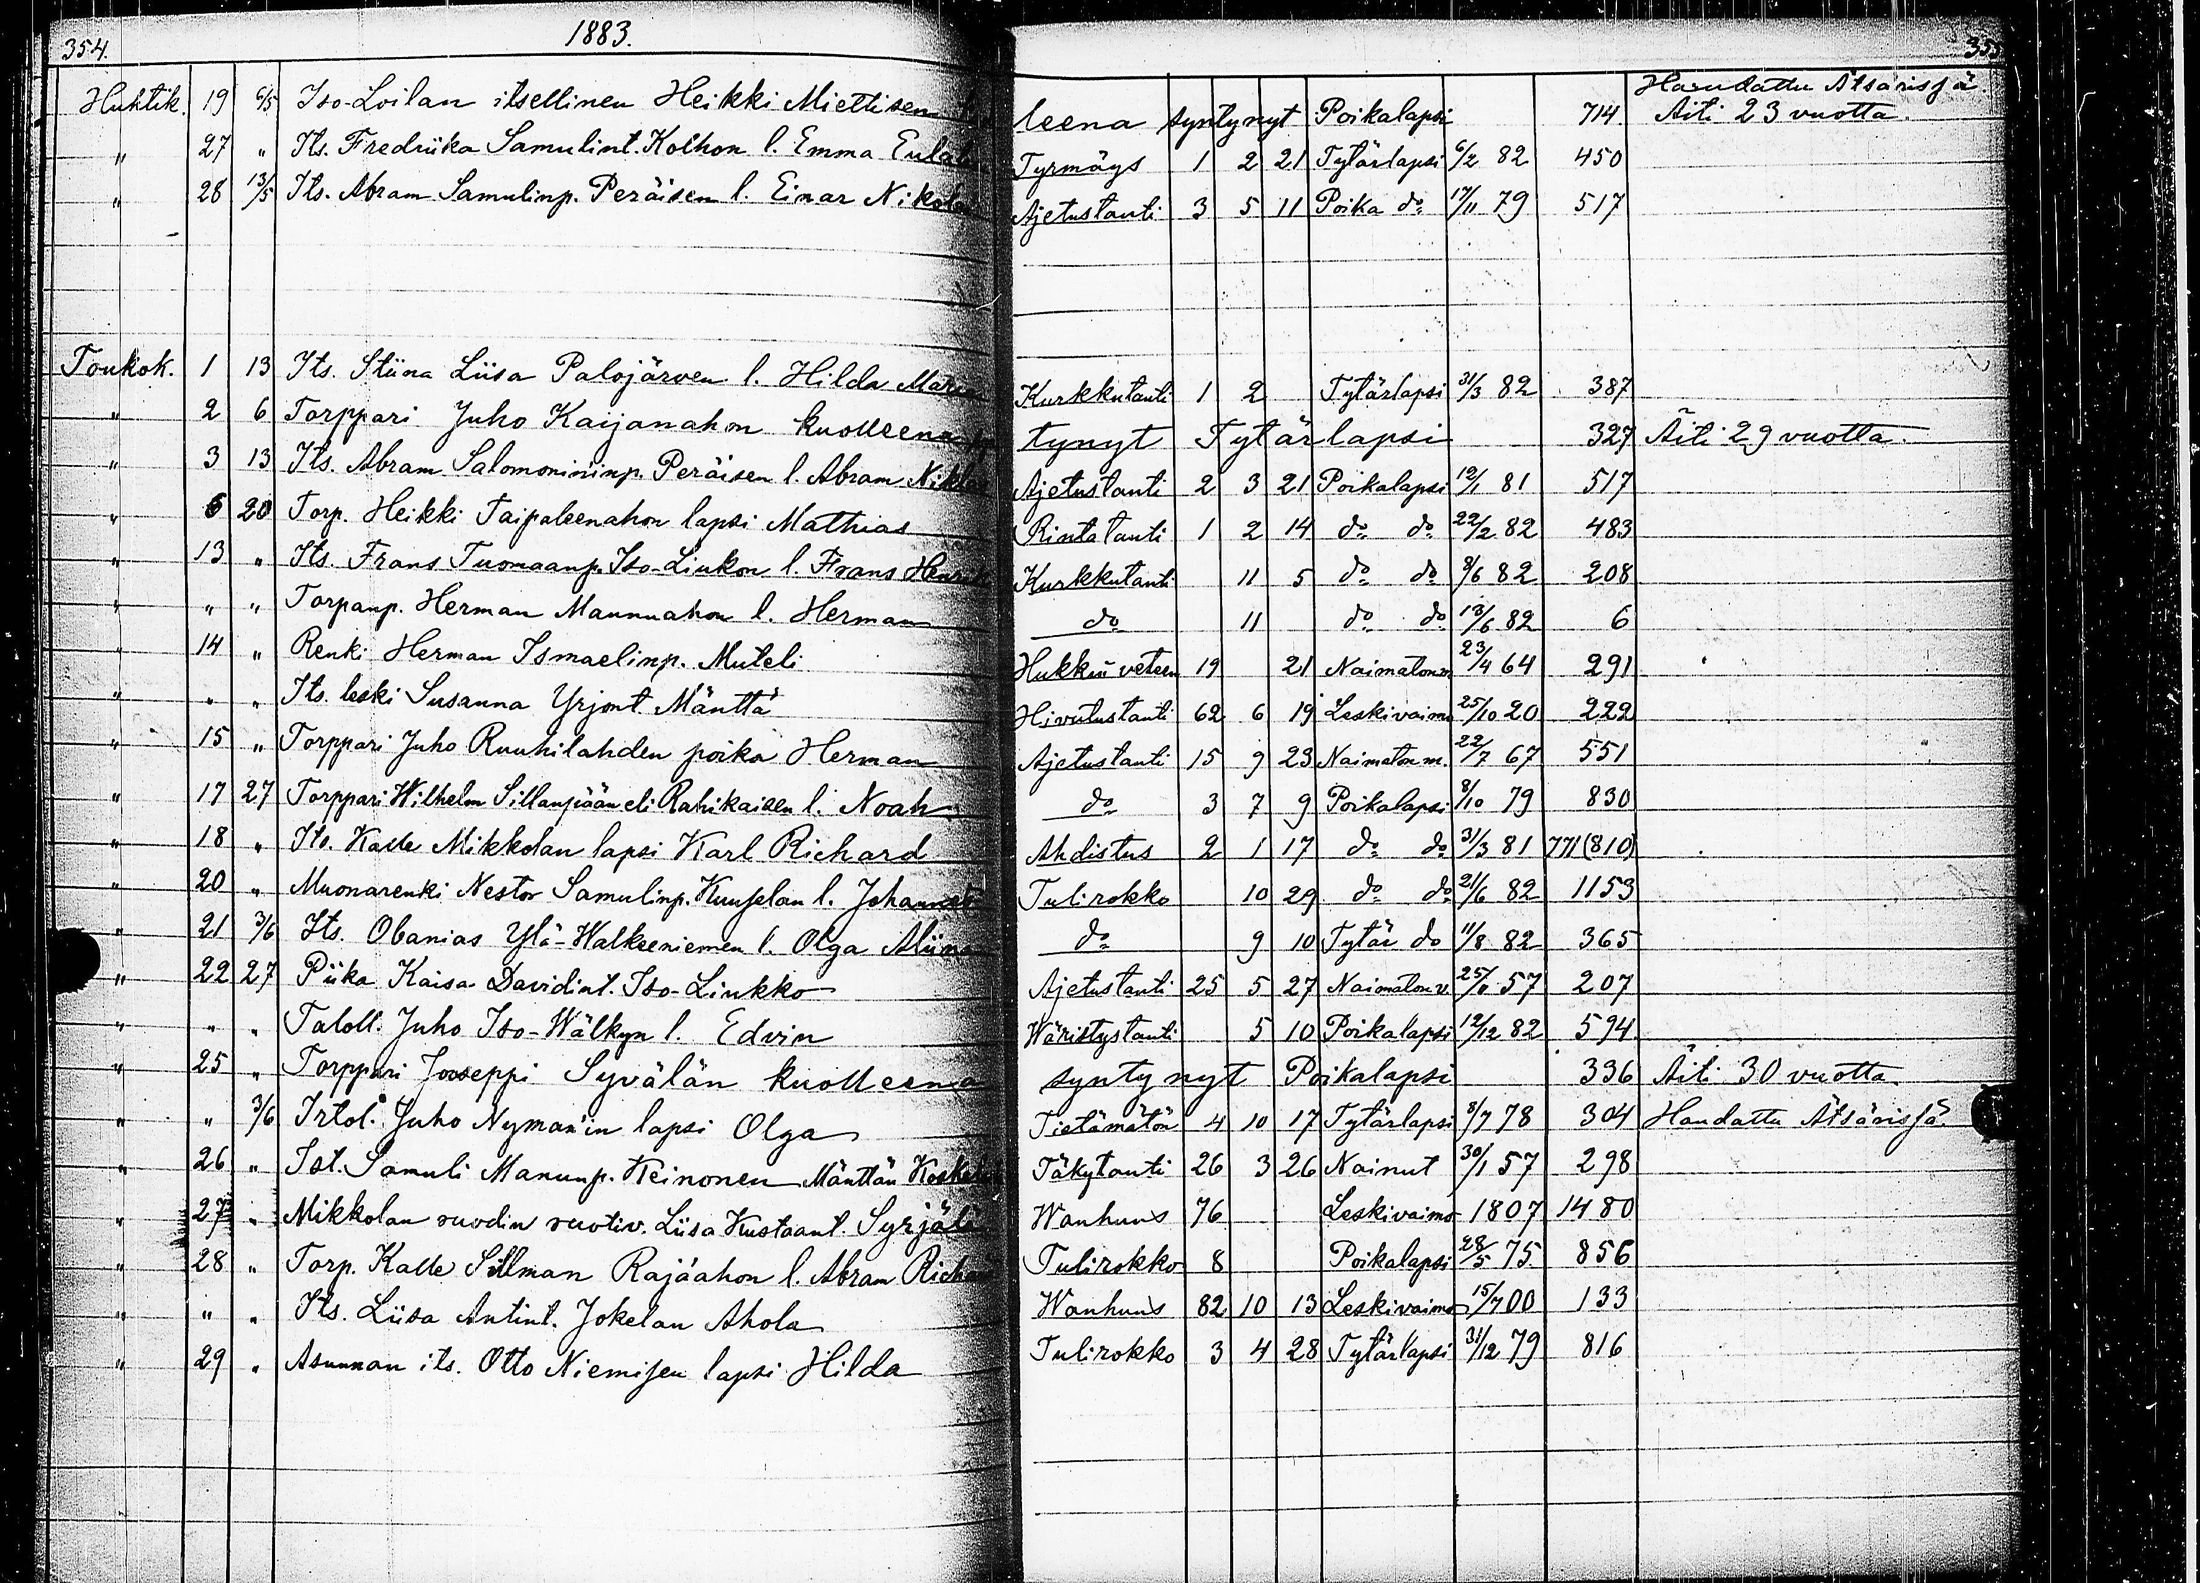 354. 1883. 355
Huhtik. 19 6/5 Iso-Loilan itsellinen Heikki Miettisen kuolleena syntynyt Poikalapsi 714. Haudattu Ätsärissä Äiti 23 vuotta.
" 27 " Its. Fredriika Samulint. Kolhon l. Emma Eulalia Tyrmäys 1 2 21 Tytärlapsi 6/2 82 450
" 28 13/5 Its. Abram Samulinp. Peräisen l. Einar Nikolai Ajetustauti 3 5 11 Poika do 17/11 79 517
Toukok. 1 13 Its. Stiina Liisa Palojärven l. Hilda Maria Kurkkutauti 1 2 Tytärlapsi 31/3 82 387
" 2 6 Torppari Juho Kaijanahon kuolleena syntynyt Tytärlapsi 327 Äiti 29 vuotta.
" 3 13 Its. Abram Salomonininp. Peräisen l. Abram Ajetustauti 2 3 21 Poikalapsi 12/1 81 517
" 6 20 Torp. Heikki Taipaleenahon lapsi Mathias Rintatauti 1 2 14 do do 22/2 82 483
" 13 " Its. Frans Tuomaanp. Iso-Liukon l. Frans Henrik Kurkkutauti 11 5 do do 8/6 82 208
" " " Torpanp. Herman Maununahon l. Herman do 11 do do 13/6 82 6
" 14 " Renki Herman Ismaelinp. Muteli Hukkui veteen 19 21 Naimaton m. 23/4 64 291
" " " Its. leski Susanna Yrjönt. Mänttä Hivutustauti 62 6 19 Leskivaimo 25/10 20 222
" 15 " Torppari Juho Ruuhilahden poika Herman Ajetustauti 15 9 23 Naimaton m. 22/7 67 551
" 17 27 Torppari Wilhelm Sillanpään eli Rahikaisen l. Noah do 3 7 9 Poikalapsi 8/10 79 830
" 18 " Its. Kalle Mikkolan lapsi Karl Richard Ahdistus 2 1 17 do do 31/3 81 771(810)
" 20 " Muonarenki Nestor Samulinp. Kuuselan l. Johannes Tulirokko 10 29 do do 21/6 82 1153
" 21 3/6 Its. Obanias Ylä-Walkeeniemen l. Olga Aliina do 9 10 Tytär do 11/8 82 365
" 22 27 Piika Kaisa Davidint. Iso-Liukko Ajetustauti 25 5 27 Naimaton v. 25/11 57 207
" " " Taloll. Juho Iso-Wälkyn l. Edvin Wäristystauti 5 10 Poikalapsi 12/12 82 594
" 25 " Torppari Jooseppi Syvälän kuolleena syntynyt Poikalapsi 336 Äiti 30 vuotta.
" " 3/6 Irtol. Juho Nyman'in lapsi Olga Tietämätön 4 10 17 Tytärlapsi 8/7 78 304 Haudattu Ätsärissä.
" 26 " Samuli Manunp. Keinonen Mänttän Täkytauti 26 3 26 Nainut 30/1 57 298
" 27 " Mikkolan ruodin ruotiv. Liisa Kustaant. Syrjälä Wanhuus 76 Leskivaimo 1807 1480
" 28 " Torp. Kalle Sillman Rajaahon l. Abram Richard Tulirokko 8 Poikalapsi 28/5 75. 856
" " " Its. Liisa Antint. Jokelan Ahola Wanhuus 82 10 13 Leskivaimo 15/7 00 133
" 29 " Asunnan its. Otto Niemisen lapsi Hilda Tulirokko 3 4 28 Tytärlapsi 31/12 79 816